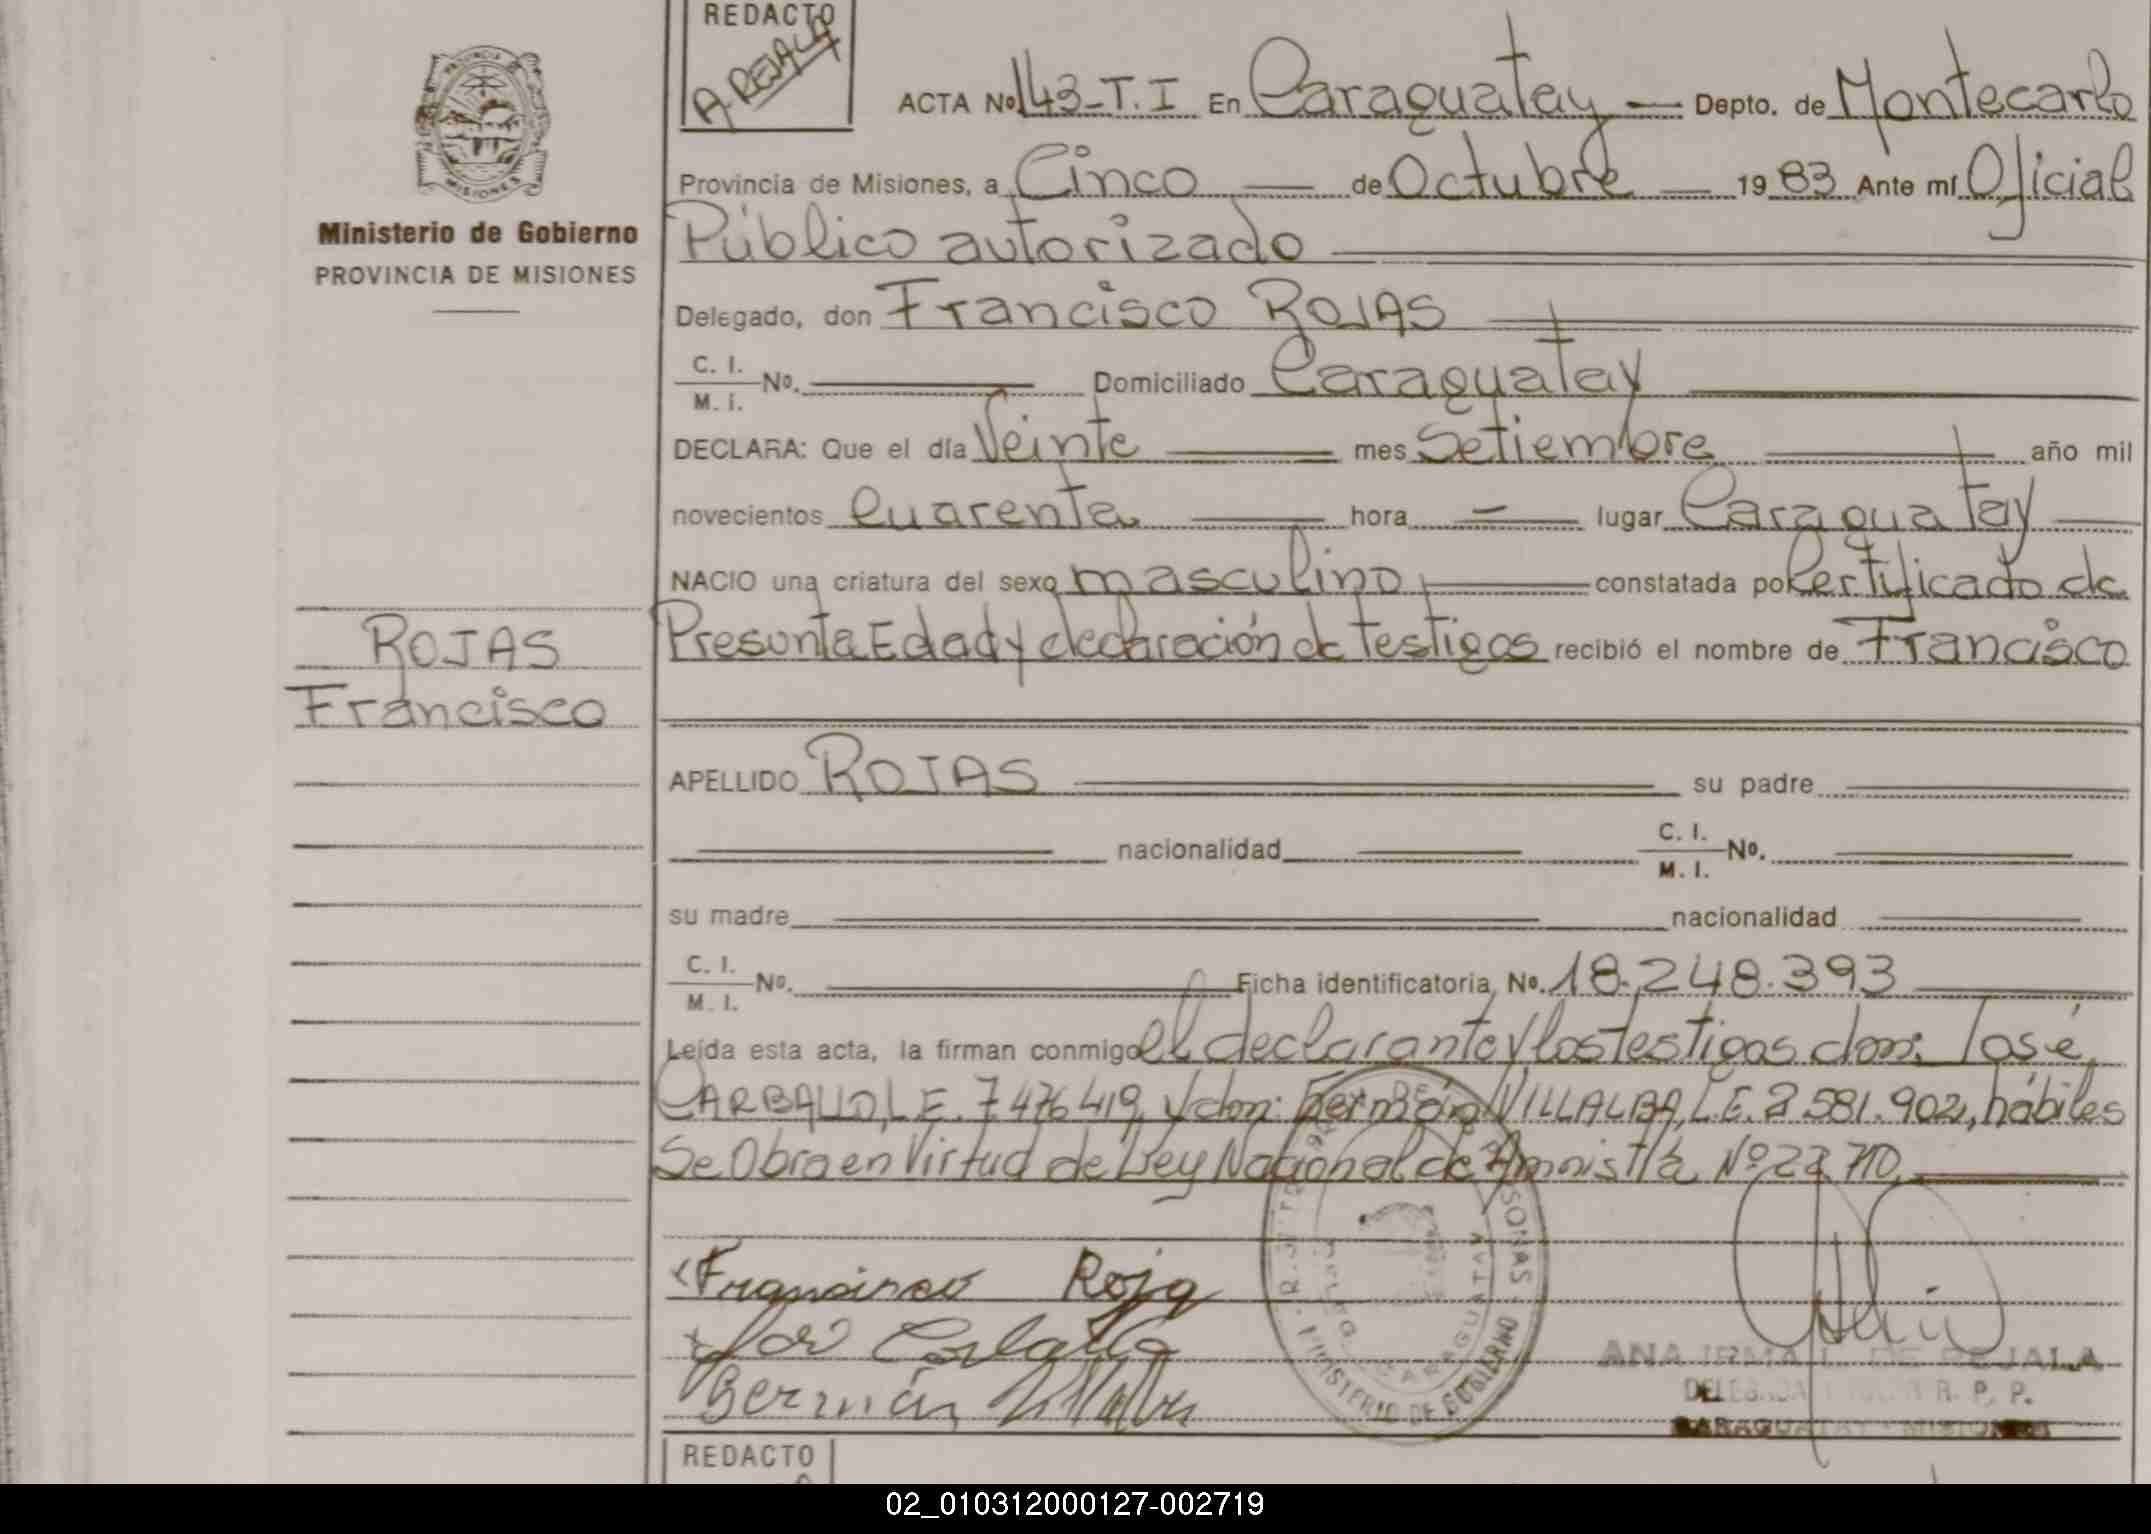 REDACTO
A. REJALA
PROVINCIA DE
MISIONES
Ministerio de Gobierno
PROVINCIA DE MISIONES
ROJAS
Francisco
ACTA Nº 143-T.I En Caraguatay Depto. de Montecarlo
Provincia de Misiones, a Cinco de Octubre 1983 Ante mí Oficial
Público autorizado
Delegado, don Francisco ROJAS
C. I.
M. I. Nº. Domiciliado Caraguatay
DECLARA: Que el día Veinte mes Setiembre año mil
novecientos Cuarenta hora lugar Caraguatay
NACIO una criatura del sexo masculino, constatada por Certificado de
Presunta Edad y declaración de testigos recibió el nombre de Francisco
APELLIDO ROJAS su padre
nacionalidad C. I.
M. I. Nº.
su madre nacionalidad
C. I.
M. I. Nº. Ficha identificatoria Nº. 18.248.393
Leída esta acta, la firman conmigo el declarante y los testigos don: José
CARBALLO, L.E. 7.476.419, y don: Germán VILLALBA, L.E. 2.581.902, hábiles
Se Obra en Virtud de Ley Nacional de Amnistía Nº 22.710,
Francisco Roja
José Carballo
Germán Villalba
MINISTERIO DE GOBIERNO
CARAGUATAY
ANA IRMA L. DE REJALA
R. P. P.
CARAGUATAY - MISIONES
REDACTO
02_010312000127-002719